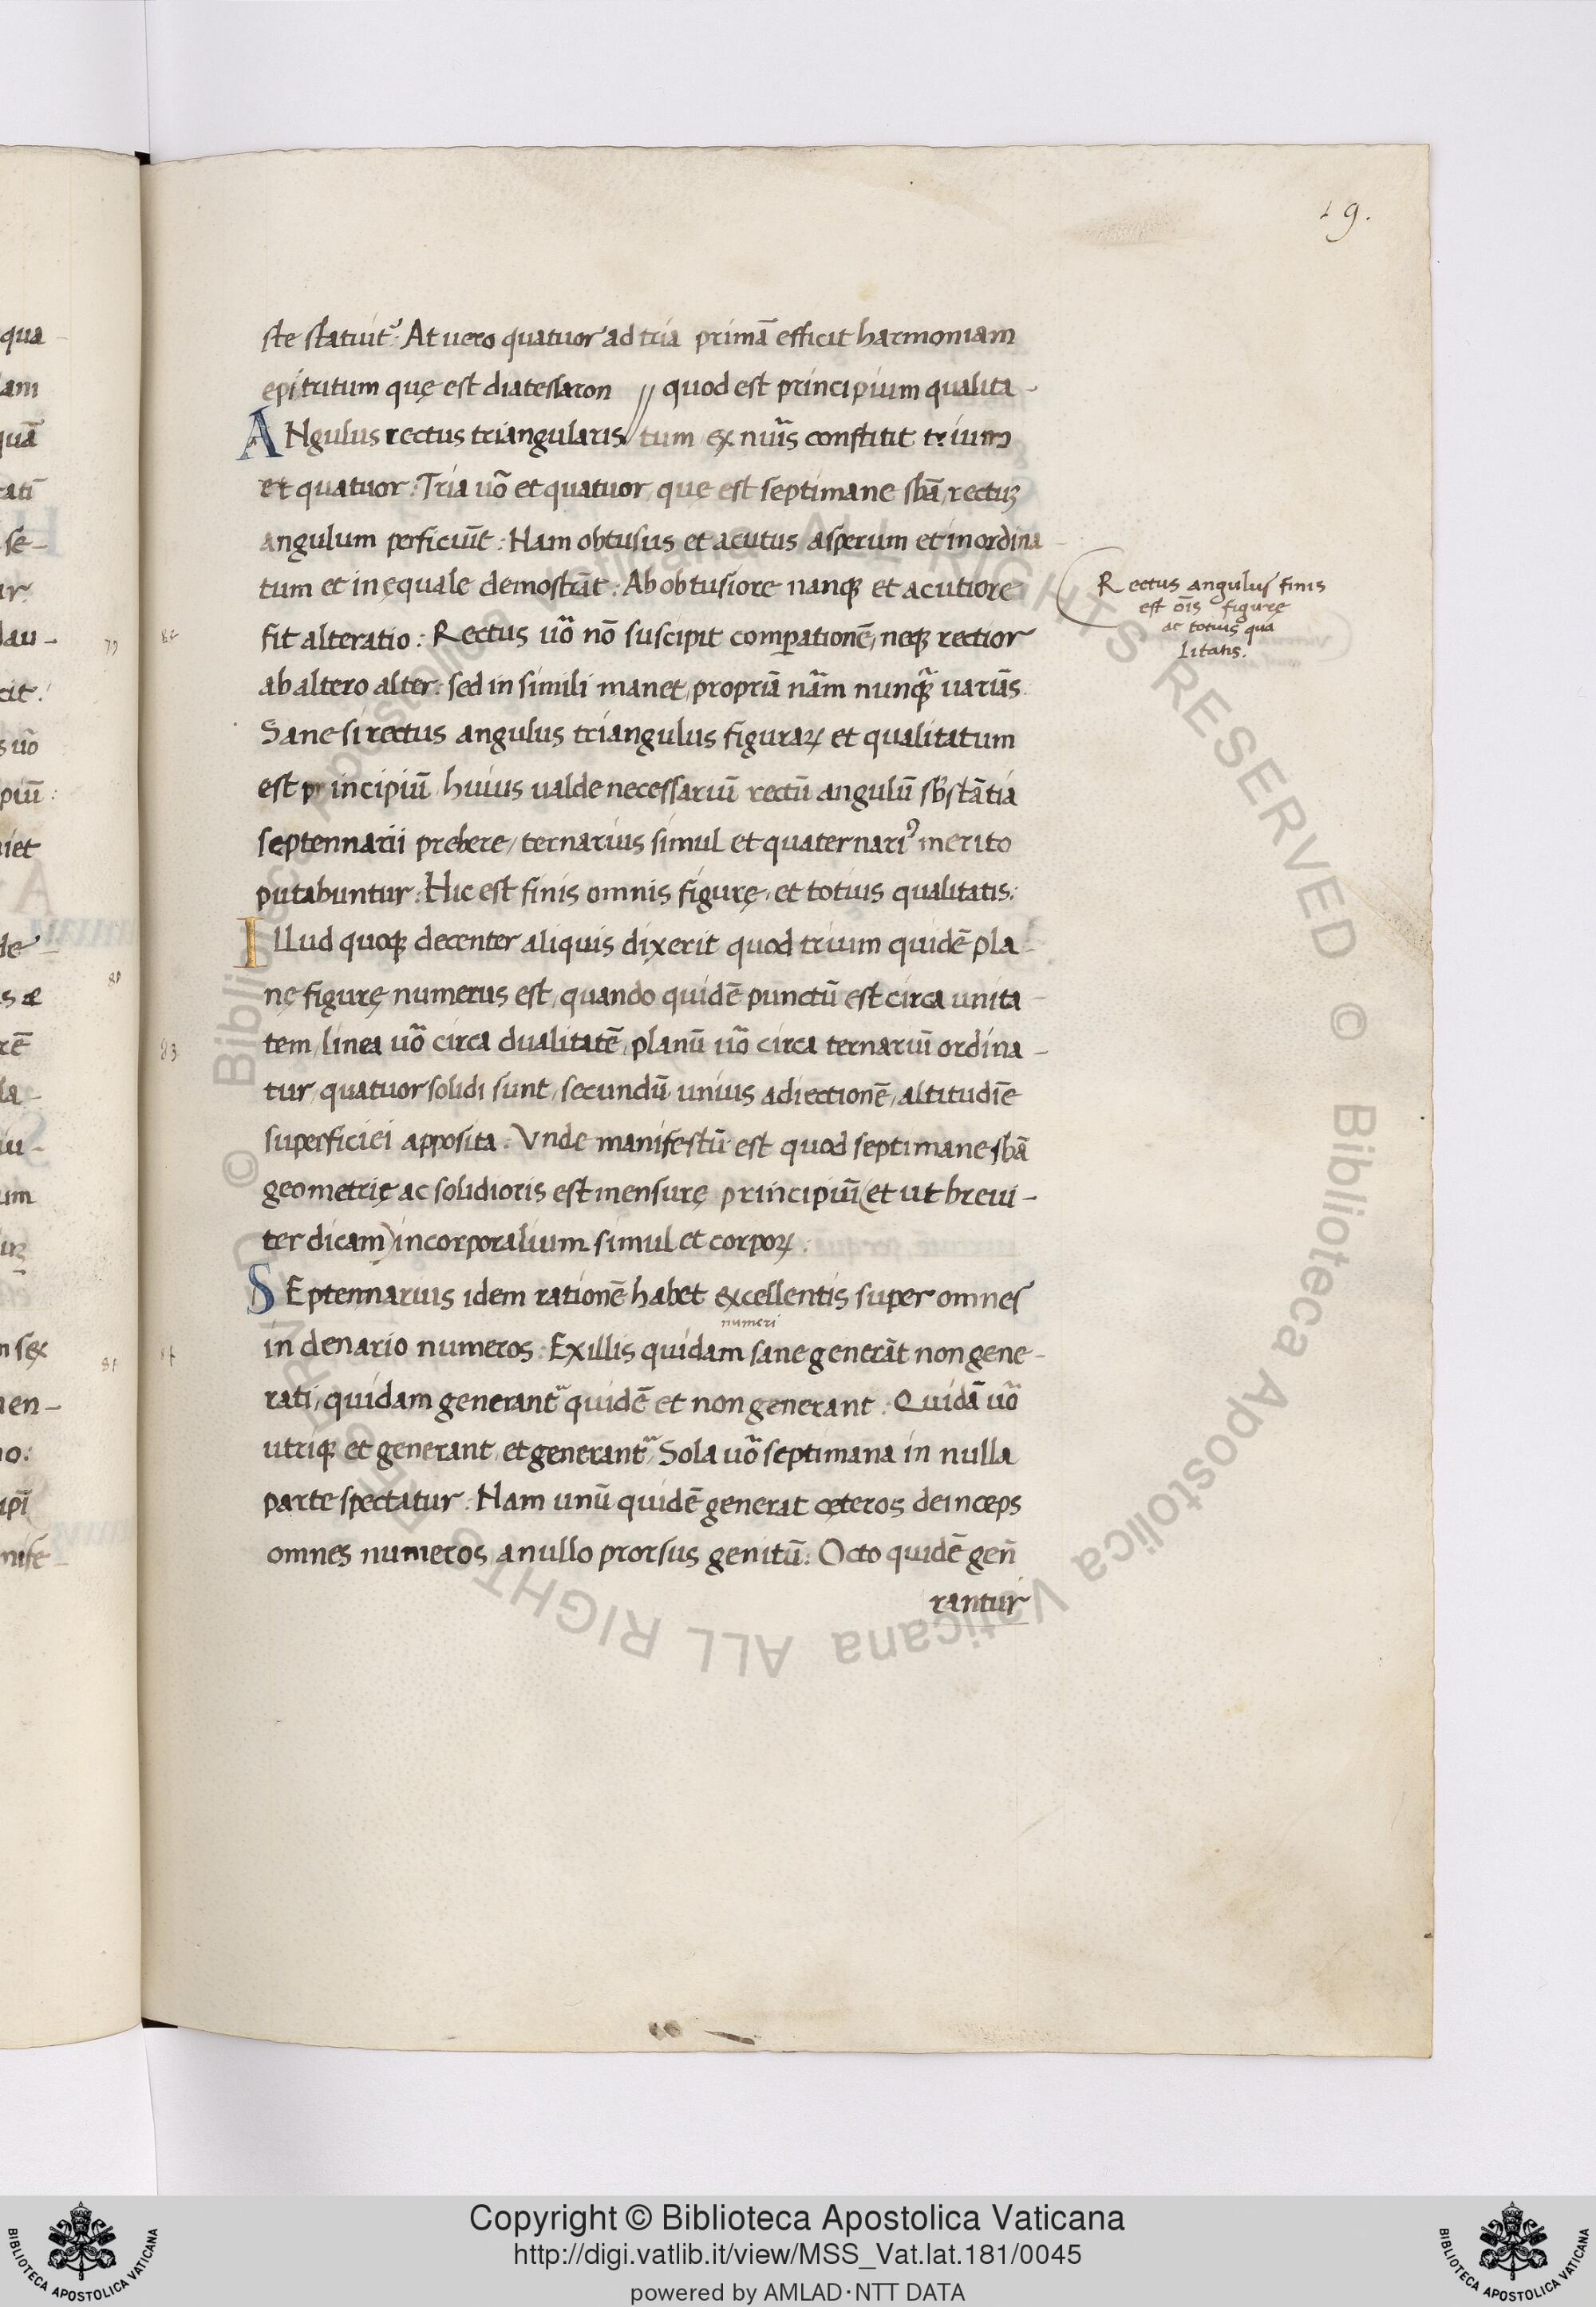 19.
ste statuit᷑: At uero quatuor ad tria primā efficit harmoniam
epitritum quę est diatessaron // quod est principium qualita-
ANgulus rectus triangularis // tum ex nu͂is constitit trium
et quatuor: Tria uo͂ et quatuor, que est septimane sba͂, rectuꝫ
angulum perficiūt: Nam obtusus et acutus asperum et inordina
tum et inęquale demostrāt: Ab obtusiore nanqꝫ et acutiore
fit alteratio: Rectus uo͂ nō suscipit comꝑationē, neqꝫ rectior
ab altero alter: sed in simili manet, propriā na͂m nunqꝫ͂ uariās.
Sane si rectus angulus triangulus figuraꝝ et qualitatum
est principiū huius ualde necessariū rectū angulū sb̄stātiā
septennarii prebere, ternarius simul et quaternariꝰ merito
putabuntur: Hic est finis omnis figurę, et totius qualitatis:
Rectus angulus finis
est oīs figurę
ac totius qua
litatis.
ILlud quoqꝫ decenter aliquis dixerit quod trium quidē pla-
nę figurę numerus est, quando quidē punctū est circa unita-
tem, linea uo͂ circa dualitatē, planū uo͂ circa ternariū ordina-
tur, quatuor solidi sunt, secundū unius adiectionē, altitudīe
superficiei apposita. Vnde manifestū est quod septimane sba͂
geometrię ac solidioris est mensurę principiū (et ut breui-
ter dicam) incorporalium simul et corpoꝝ.
SEptennarius idem rationē habet excellentis super omnes
numeri
in denario numeros: Ex illis quidam sane generāt non gene-
rati, quidam generant᷑ quidē et non generant: Quidā uo͂
utriqꝫ et generant, et generant᷑, Sola uo͂ septimana in nulla
parte spectatur: Nam unū quidē generat cęteros deinceps
omnes numeros, a nullo prorsus genitū: Octo quidē gen̄
rantur
Copyright © Biblioteca Apostolica Vaticana
http://digi.vatlib.it/view/MSS_Vat.lat.181/0045
powered by AMLAD·NTT DATA
BIBLIOTECA APOSTOLICA VATICANA
BIBLIOTECA APOSTOLICA VATICANA
© Biblioteca Apostolica Vaticana ALL RIGHTS RESERVED © Biblioteca Apostolica Vaticana ALL RIGHTS RESERVED